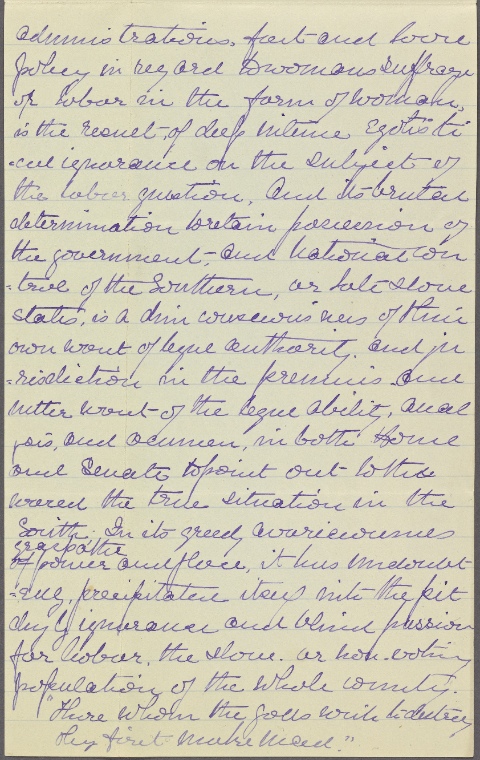 administrations, fast and loose
policy in regard to womans suffrage
or labor in the form of woman,
is the result, of deep intense Egotisti
-cal ignorance on the subject of
the labor question, And its brutal
determination to retain possession of
the government, and National con
-trol of the Southern, or late slave
states, is a dim consciousness of their
own want of legal authority. and ju
-risdiction in the premises. and
utter want of the legal ability, anal
ysis, and acumen, in both House
and Senate to point out to the
world the true situation in the
South. In its greedy avariciousness
grasp of the
of power and place, it has undoubt
-edly, precipitated itself into the pit
dug by ignorance and blind passion
for labor, the slave. or non-voting
population of the whole country.
"Those whom the gods wish to destroy
they first make mad."